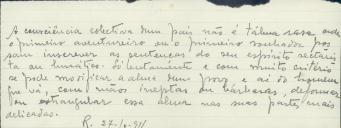 A consciência colectiva dum país não é tábua rasa onde
o primeiro aventureiro ou o primeiro sonhador pos-
sam inscrever as sentenças do seu espírito sectaris-
ta ou lunático. So lentamente e com muito critério
se pode modificar a alma dum povo, e ai do homem
que vá, com mãos ineptas ou bárbaras, deformar
ou estrangular essa alma nas suas partes mais
delicadas.
R. 27. 911